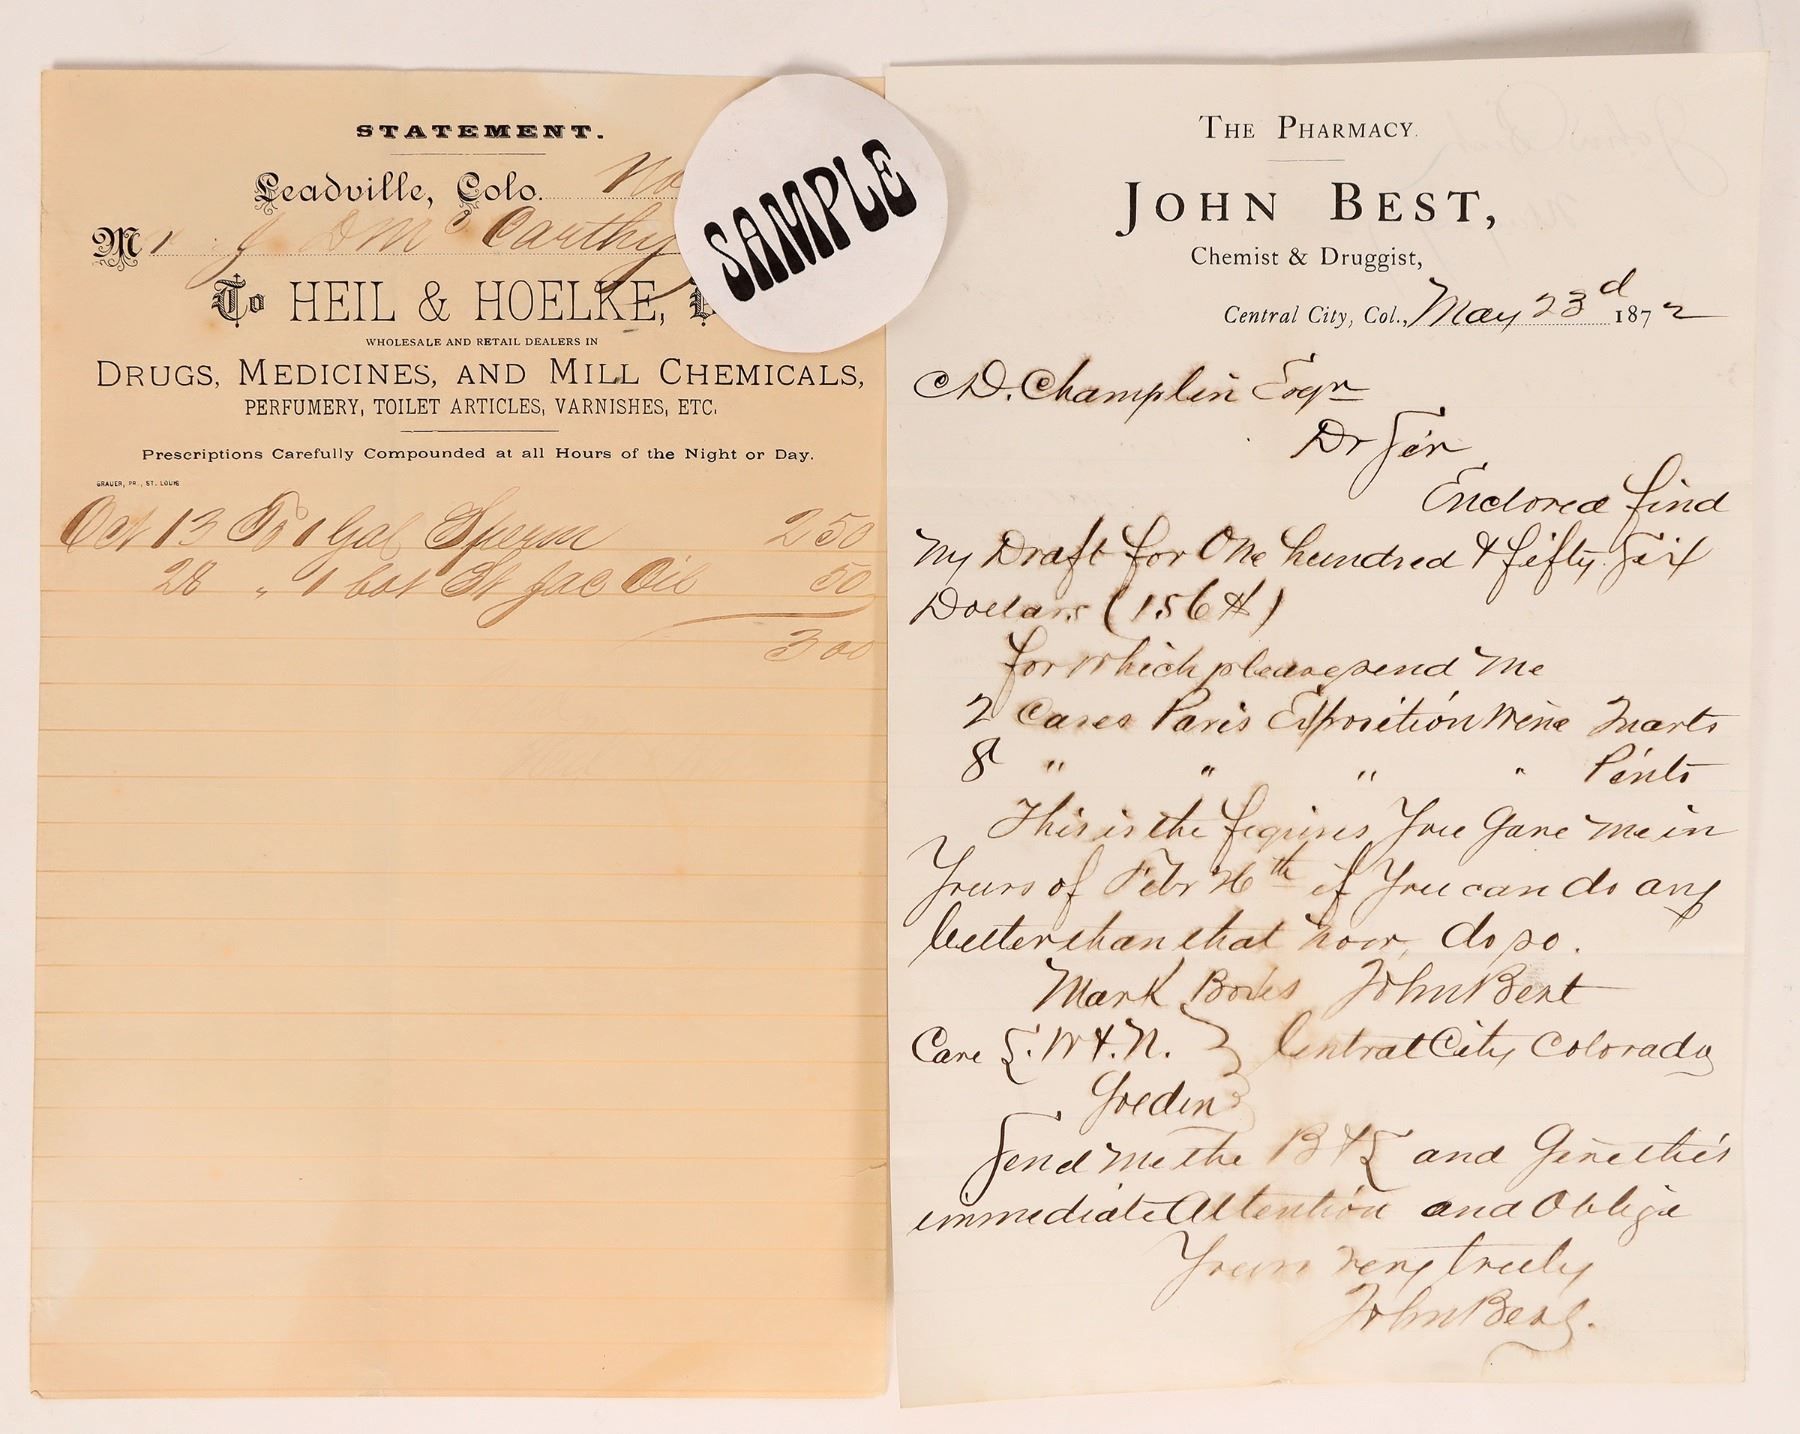 STATEMENT.
Leadville, Colo. No
Mr. J D McCarthy
To HEIL & HOELKE,
WHOLESALE AND RETAIL DEALERS IN
DRUGS, MEDICINES, AND MILL CHEMICALS,
PERFUMERY, TOILET ARTICLES, VARNISHES, ETC.
Prescriptions Carefully Compounded at all Hours of the Night or Day.
GRAUER, PR., ST. LOUIS
Oct 13 To 1 Gal Sperm 2 50
28 " 1 bot St Jac Oil 50
3 00
SAMPLE
THE PHARMACY.
JOHN BEST,
Chemist & Druggist,
Central City, Col., May 23d 1872
D. Champlin Esqr
Dr Sir
Enclosed find
My Draft for One hundred & fifty Six
Dollars (156 $)
for which please send Me
2 Cases Paris Exposition Wine Quarts
8 " " " " Pints
This is the figures You Gave me in
Yours of Febr 26th if You can do any
better than that now, do so.
Mark Boxes John Best
Care W & N. Central City Colorado
Golden
Send Me the B & and
immediate Attention and Oblige
Yours very truly
John Best.